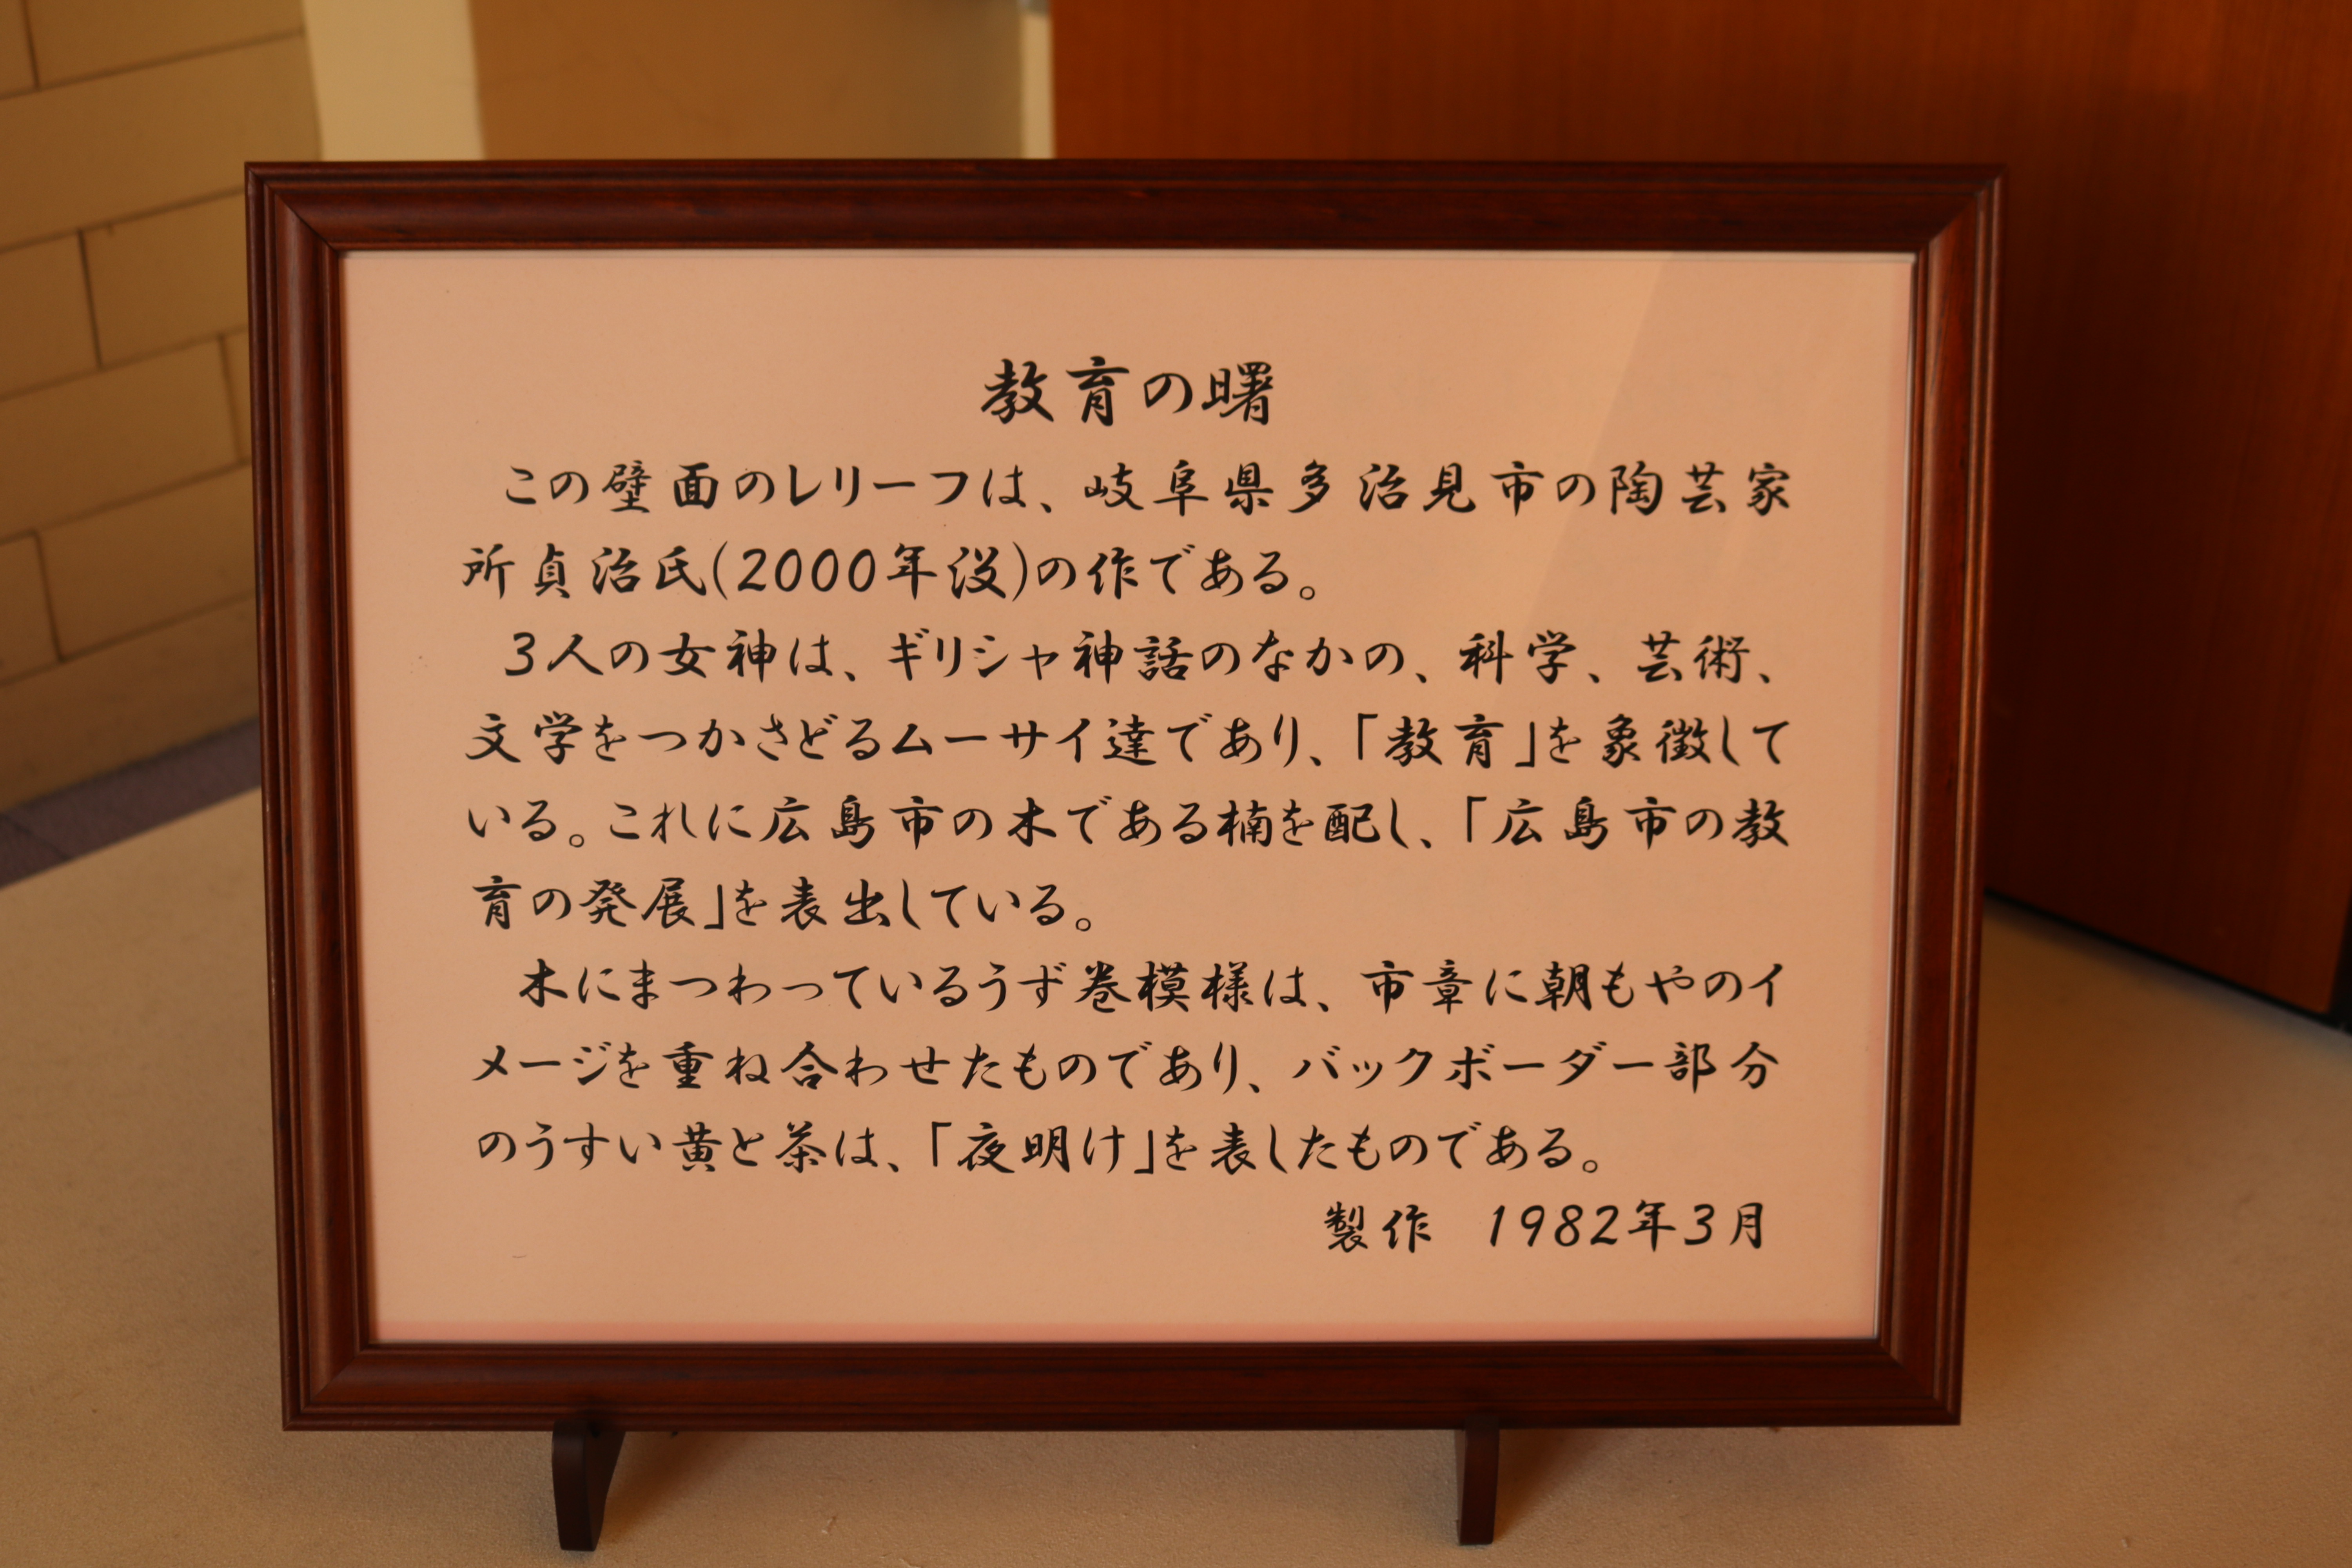 教育の曙
この壁面のレリーフは、岐阜県多治見市の陶芸家
所貞治氏(2000年没)の作である。
3人の女神は、ギリシャ神話のなかの、科学、芸術、
文学をつかさどるムーサイ達であり、「教育」を象徴して
いる。これに広島市の木である楠を配し、「広島市の教
育の発展」を表出している。
木にまつわっているうず巻模様は、市章に朝もやのイ
メージを重ね合わせたものであり、バックボーダー部分
のうすい黄と茶は、「夜明け」を表したものである。
製作 1982年3月